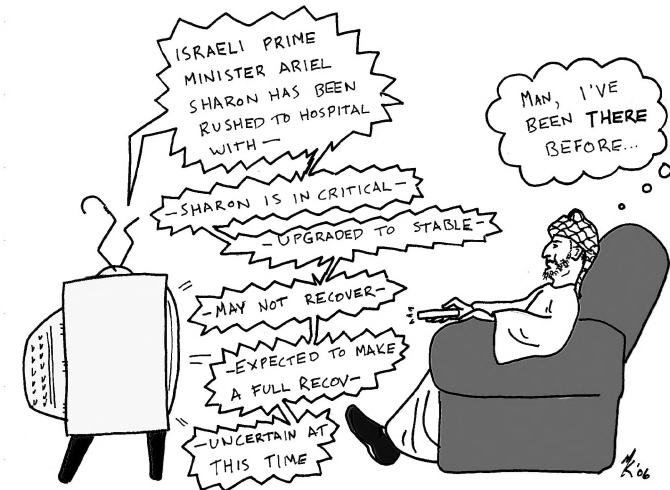 ISRAELI PRIME
MINISTER ARIEL
SHARON HAS BEEN
RUSHED TO HOSPITAL
WITH—
—SHARON IS IN CRITICAL—
—UPGRADED TO STABLE—
—MAY NOT RECOVER—
—EXPECTED TO MAKE
A FULL RECOV—
—UNCERTAIN AT
THIS TIME
MAN, I'VE
BEEN THERE
BEFORE...
'06